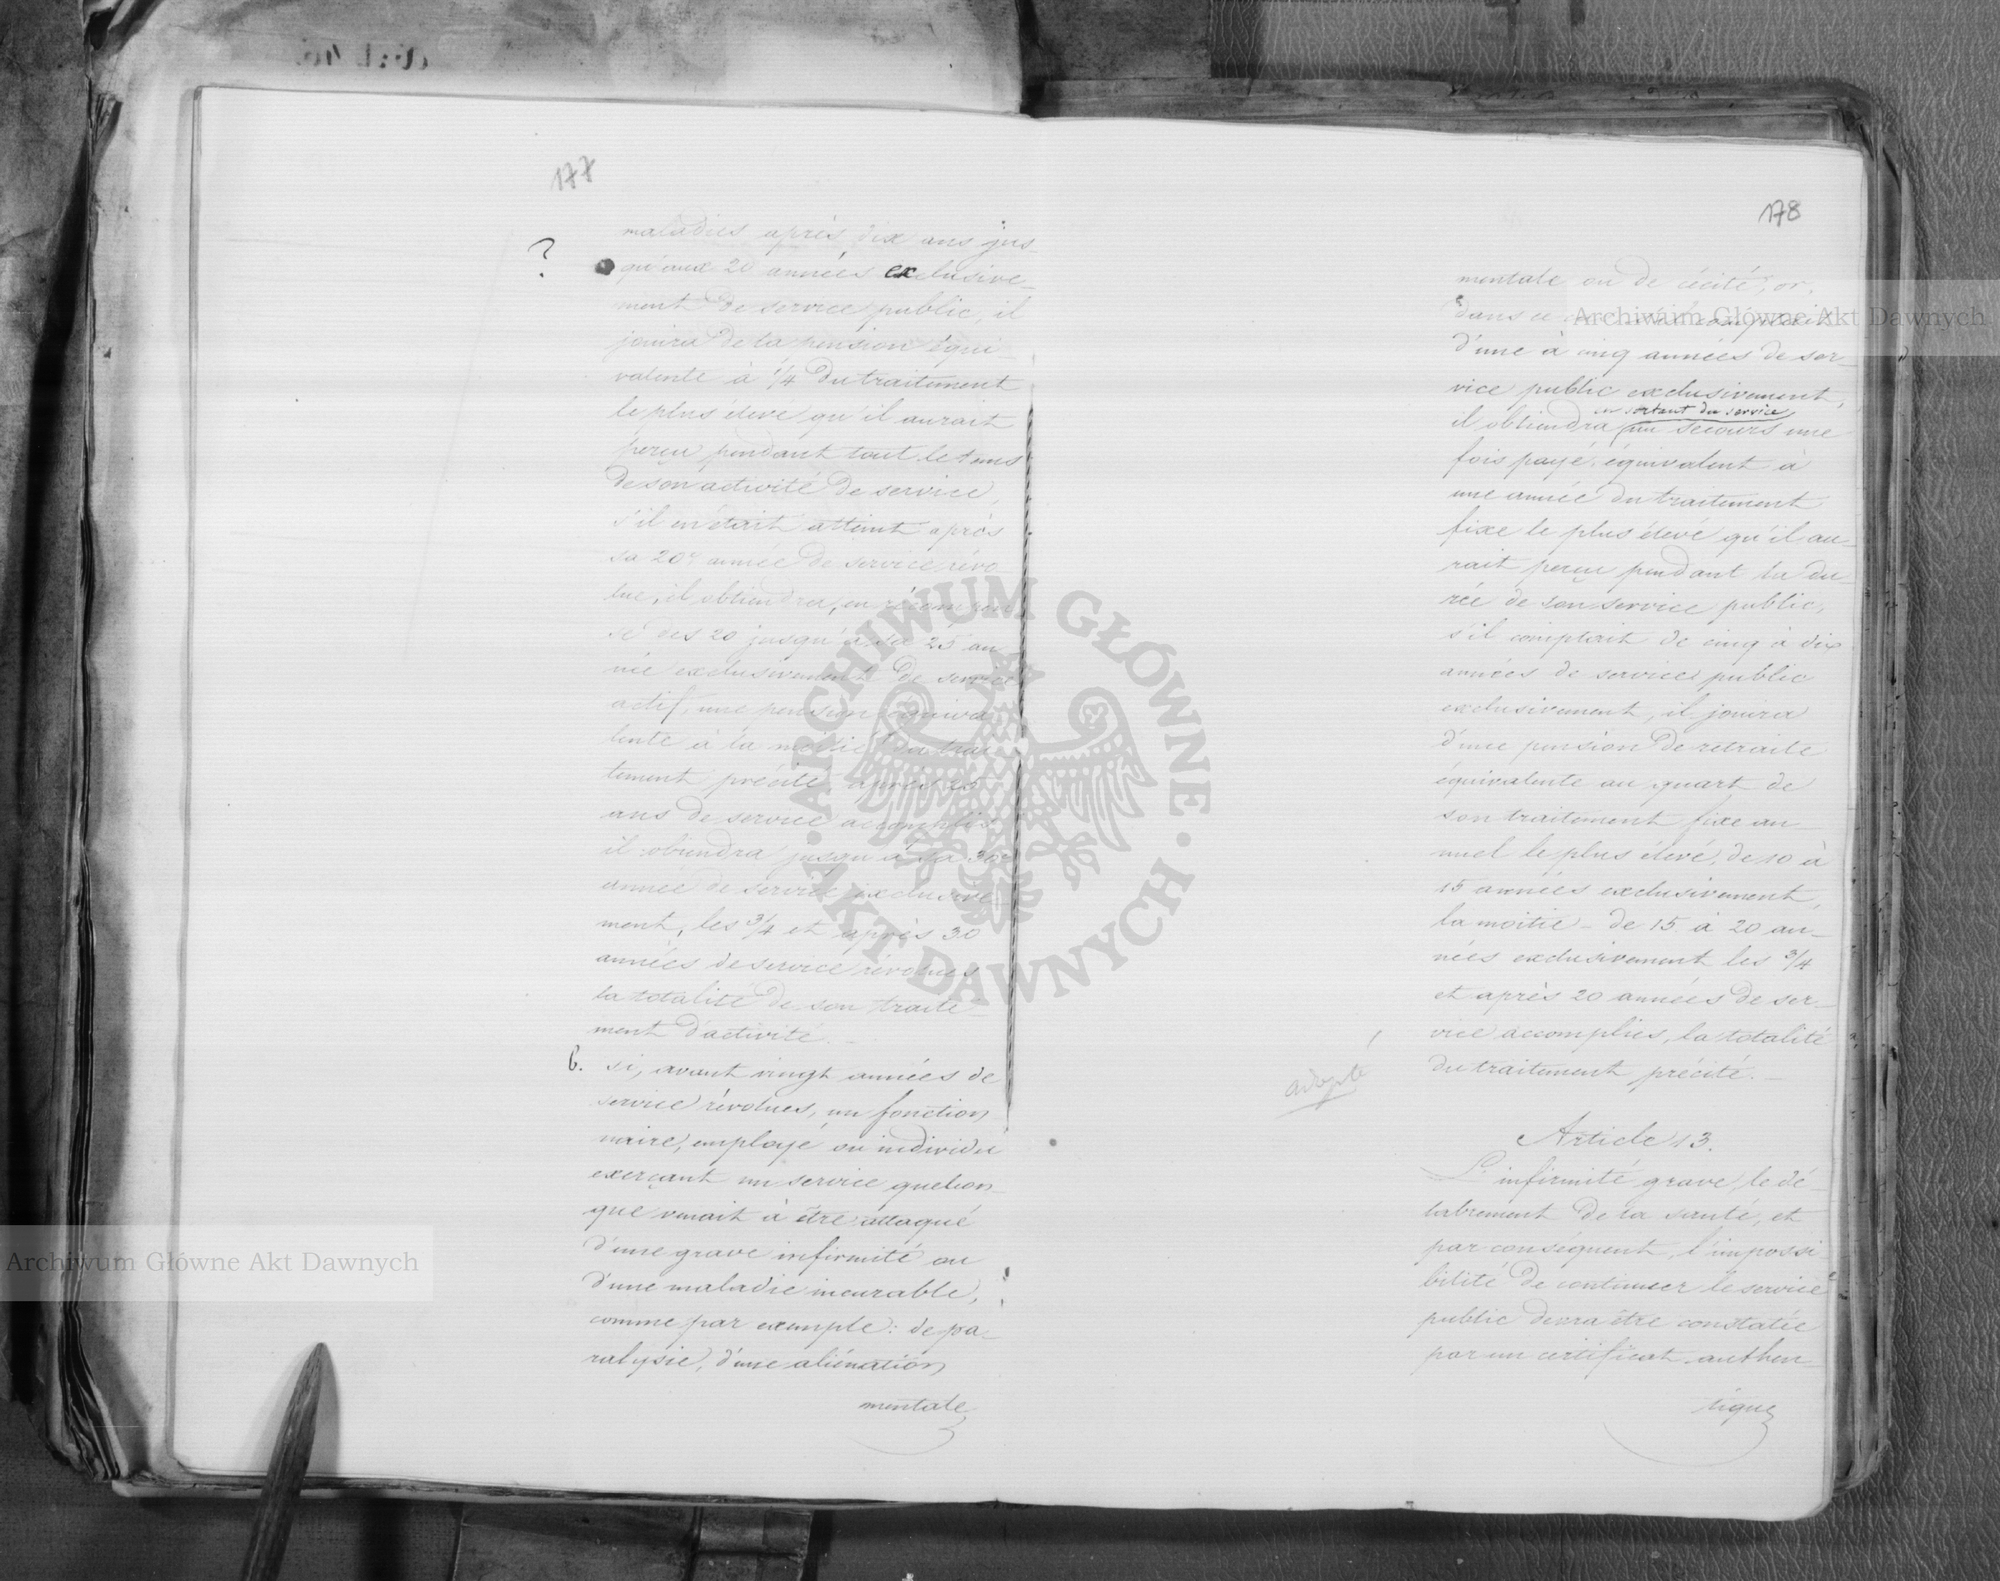 177
maladies après dix ans jus
? qu'aux 20 années exclusive-
ment de service public, il
jouira de la pension équi-
valente à 1/4 du traitement
le plus élevé qu'il aurait
perçu pendant tout le tems
de son activité de service,
s'il en était atteint après
sa 20e année de service révo
lue, il obtiendra, en récompen
se des 20 jusqu'à sa 25 an
née exclusivement de service
actif, une pension équiva
lente à la moitié du trai
tement précité après 25
ans de service accomplis
il obiendra jusqu'à sa 30e
année de service exclusive
ment, les 3/4 et après 30
années de service révolues
la totalité de son traite-
ment d'activité. —
6. si, avant vingt années de
service révolues, un fonction
naire, employé ou individu
exerçant un service quelcon-
que venait à être attaqué
d'une grave infirmité ou
d'une maladie incurable,
comme par exemple: de pa-
ralysie, d'une aliénation
mentale
178
mentale ou de cécité, or,
dans ce cas il comptait
d'une à cinq années de ser-
vice public exclusivement,
en sortant du service
il obtiendra un secours une
fois payé, équivalent à
une année du traitement
fixe le plus élevé qu'il au-
rait perçu pendant la du-
rée de son service public,
s'il comptait de cinq à dix
années de service public
exclusivement, il jouira
d'une pension de retraite
équivalente au quart de
son traitement fixe an-
nuel le plus élevé, de 10 à
15 années exclusivement,
la moitié - de 15 à 20 an-
nées exclusivement les 3/4
et après 20 années de ser-
vice accomplies, la totalité
du traitement précité. —
adopté
Article 13.
L'infirmité grave, le dé-
labrement de la santé, et
par conséquent, l'impossi
bilité de continuer le service
public devra être constatée
par un certificat authen-
tique
Archiwum Główne Akt Dawnych
Archiwum Główne Akt Dawnych
ARCHIWUM GŁÓWNE · AKT DAWNYCH ·